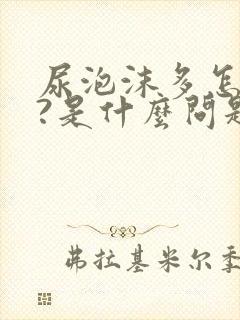 尿泡沫多怎
?是什麼問題
弗拉基米尔季